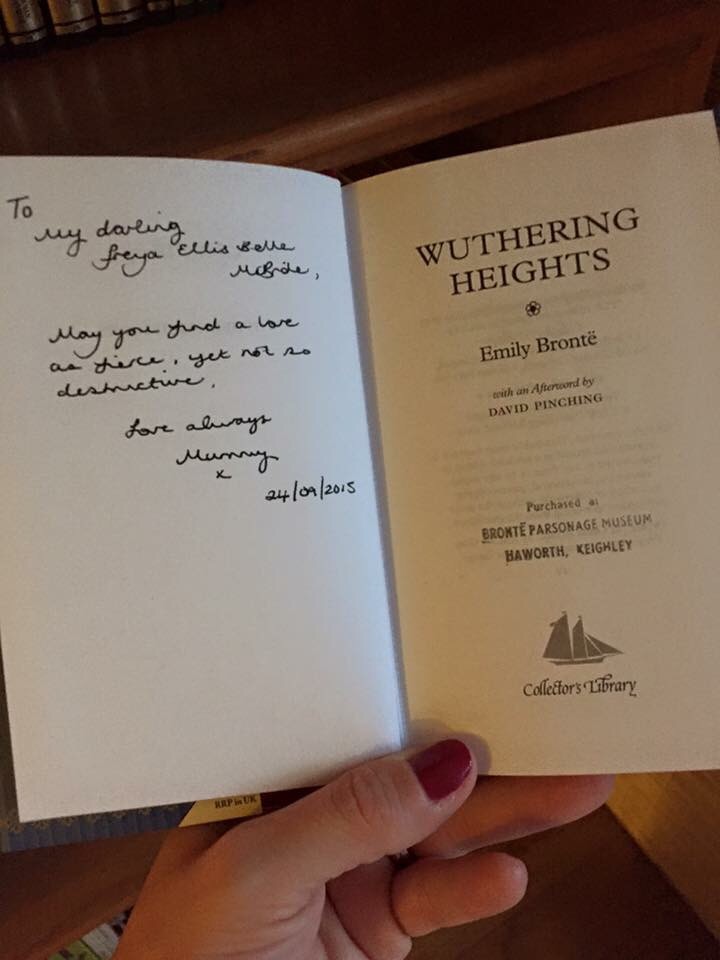 To
My darling
Freya Ellis Belle
McBride,
May you find a love
as fierce, yet not so
destructive,
Love always
Mummy
x
24/09/2015
RRP in UK
WUTHERING
HEIGHTS
Emily Brontë
with an Afterword by
DAVID PINCHING
Purchased at
BRONTË PARSONAGE MUSEUM
HAWORTH, KEIGHLEY
Collector's Library